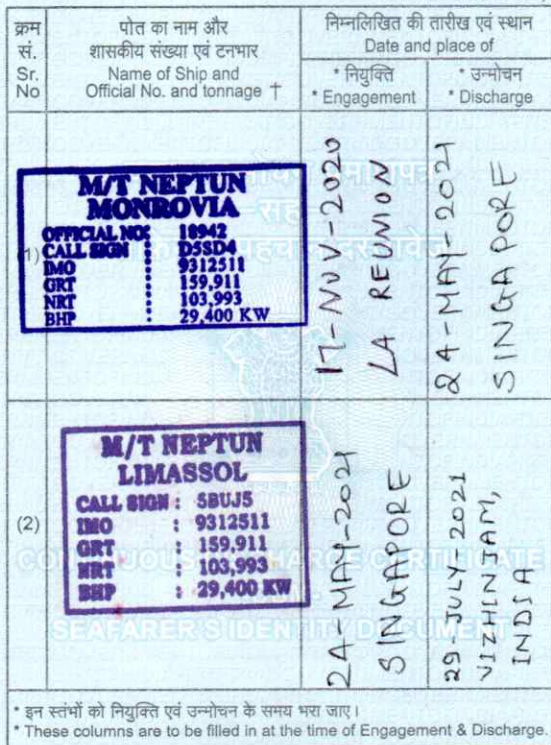 क्रम सं. Sr. No
पोत का नाम और शासकीय संख्या एवं टनभार
Name of Ship and Official No. and tonnage †
निम्नलिखित की तारीख एवं स्थान
Date and place of
* नियुक्ति
* Engagement
* उन्मोचन
* Discharge
(1)
M/T NEPTUN
MONROVIA
OFFICIAL NO: 18942
CALL SIGN : D5SD4
IMO : 9312511
GRT : 159,911
NRT : 103,993
BHP : 29,400 KW
17-NOV-2020
LA REUNION
24-MAY-2021
SINGAPORE
(2)
M/T NEPTUN
LIMASSOL
CALL SIGN : 5BUJ5
IMO : 9312511
GRT : 159,911
NRT : 103,993
BHP : 29,400 KW
24-MAY-2021
SINGAPORE
29-JULY-2021
VIZHINJAM,
INDIA
CONTINUOUS DISCHARGE CERTIFICATE
SEAFARER'S IDENTITY DOCUMENT
* इन स्तंभों को नियुक्ति एवं उन्मोचन के समय भरा जाए।
* These columns are to be filled in at the time of Engagement & Discharge.